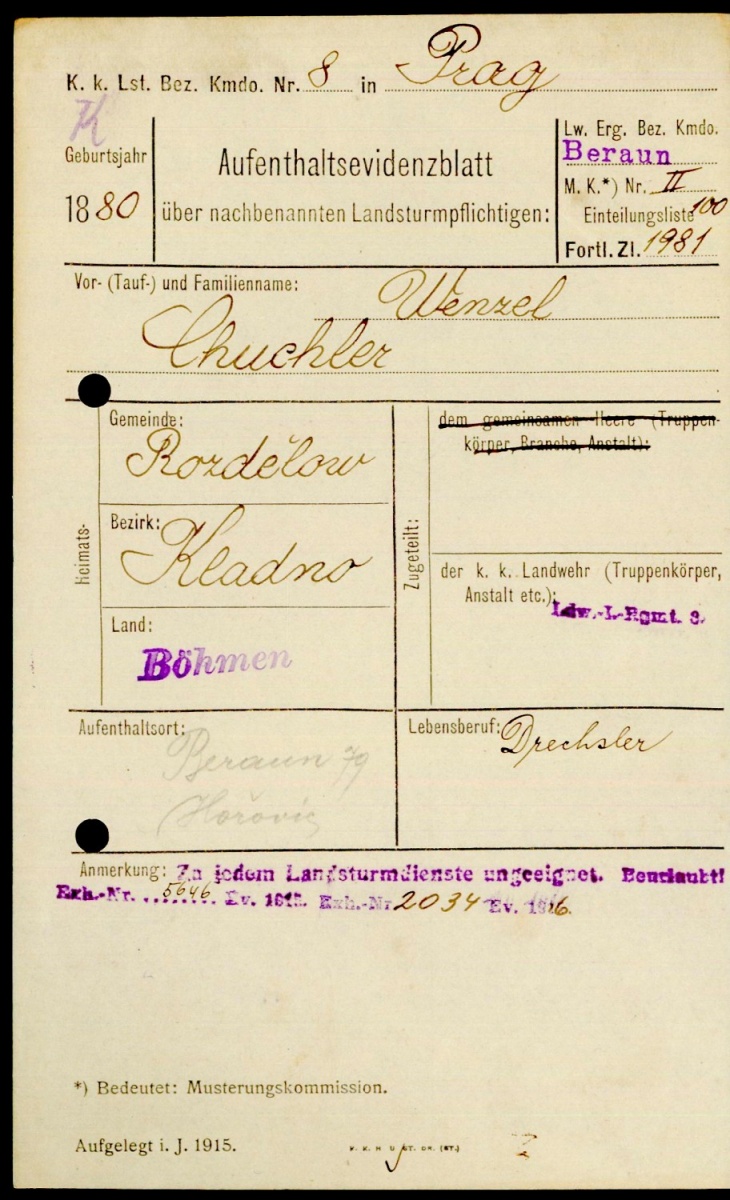 K. k. Lst. Bez. Kmdo. Nr. 8 in Prag
K
Geburtsjahr
1880
Aufenthaltsevidenzblatt
über nachbenannten Landsturmpflichtigen:
Lw. Erg. Bez. Kmdo.
Beraun
M. K.*) Nr. II
Einteilungsliste 100
Fortl. Zl. 1981
Vor- (Tauf-) und Familienname: Wenzel
Chuchler
Heimats-
Gemeinde:
Rozdělow
Bezirk:
Kladno
Land:
Böhmen
Zugeteilt:
dem gemeinsamen Heere (Truppen-
körper, Branche, Anstalt):
der k. k. Landwehr (Truppenkörper,
Anstalt etc.):
Ldw.-I.-Rgmt. 8.
Aufenthaltsort:
Beraun 79
Hořovic
Lebensberuf: Drechsler
Anmerkung: Zu jedem Landsturmdienste ungeeignet. Beurlaubt!
Exh.-Nr. 5646 Ev. 1915. Exh.-Nr. 2034 Ev. 1916.
*) Bedeutet: Musterungskommission.
Aufgelegt i. J. 1915.